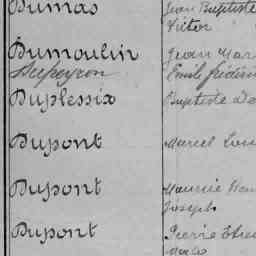 Dumas Jean Baptiste
Victor
Dumoulin Jean Mar
Dupeyron Emile Frédéri
Duplessix Baptiste
Dupont Marcel Lou
Dupont Maurice Hen
Joseph
Dupont Pierre